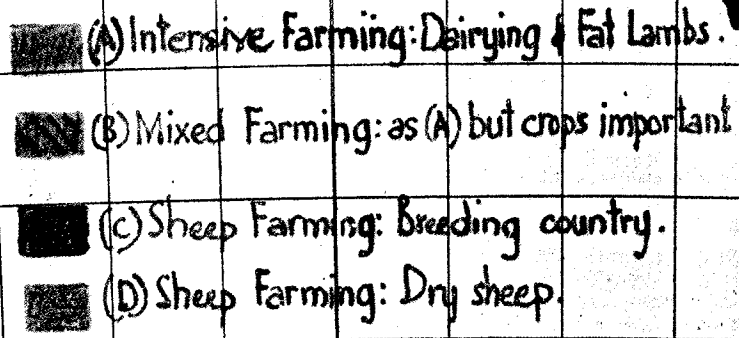 (A) Intensive Farming: Dairying & Fat Lambs.
(B) Mixed Farming: as (A) but crops important
(C) Sheep Farming: Breeding country.
(D) Sheep Farming: Dry sheep.